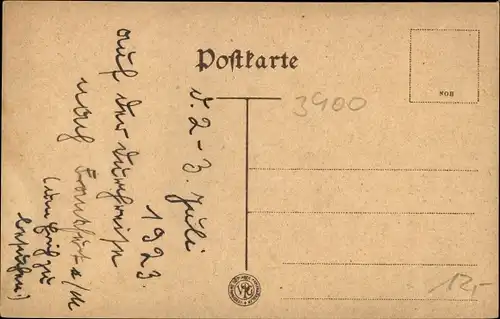 Postkarte
NOB
3900
d. 2 - 3. Juli
1923.
auf der Durchreise
nach Frankfurt a/M
12,-